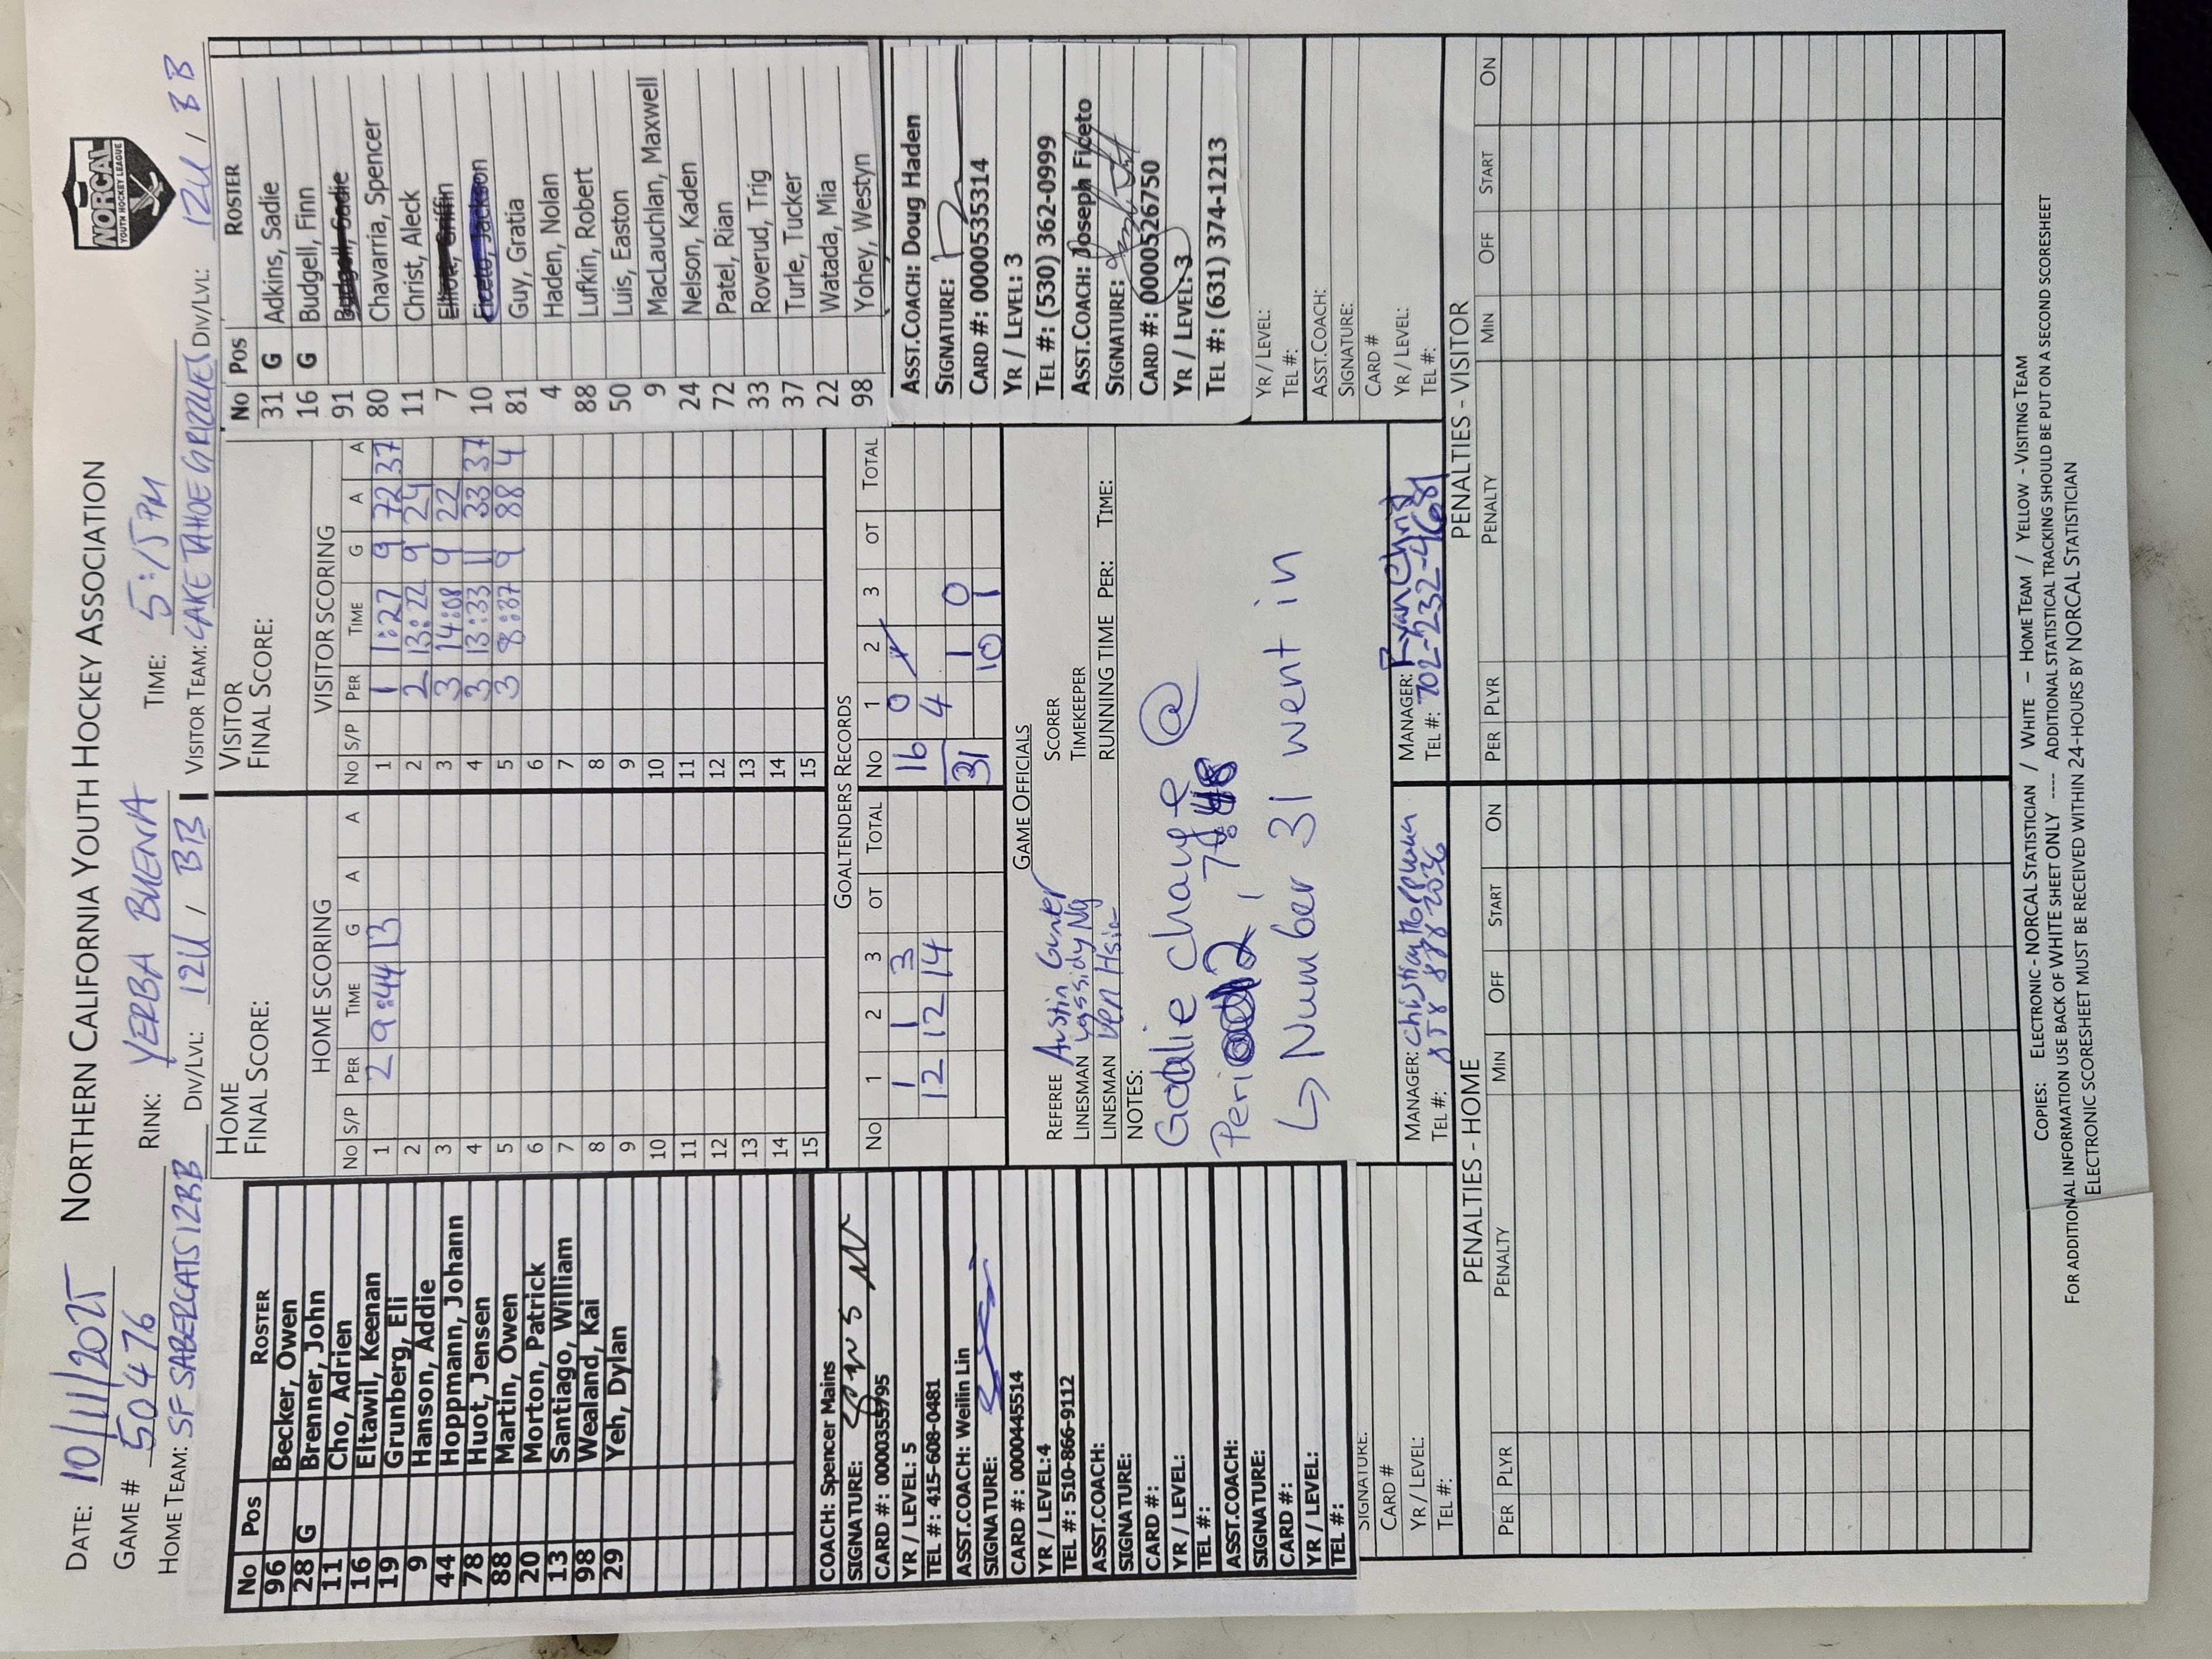 NORTHERN CALIFORNIA YOUTH HOCKEY ASSOCIATION
NORCAL
YOUTH HOCKEY LEAGUE
DATE: 10/11/2025
GAME # 50476 RINK: YERBA BUENA TIME: 5:15 PM
HOME TEAM: SF SABERCATS 12BB DIV/LVL: 12U, BB VISITOR TEAM: LAKE TAHOE GRIZZLIES DIV/LVL: 12U, BB
No Pos ROSTER
96 Becker, Owen
28 G Brenner, John
11 Cho, Adrien
16 Eltawil, Keenan
19 Grunberg, Eli
9 Hanson, Addie
44 Hoppmann, Johann
78 Huot, Jensen
88 Martin, Owen
20 Morton, Patrick
13 Santiago, William
98 Wealand, Kai
29 Yeh, Dylan
COACH: Spencer Mains
SIGNATURE:
CARD #: 0000355795
YR / LEVEL: 5
TEL #: 415-608-0481
ASST.COACH: Weilin Lin
SIGNATURE:
CARD #: 0000445514
YR / LEVEL:4
TEL #: 510-866-9112
ASST.COACH:
SIGNATURE:
CARD #:
YR / LEVEL:
TEL #:
ASST.COACH:
SIGNATURE:
CARD #:
YR / LEVEL:
TEL #:
SIGNATURE:
CARD #
YR / LEVEL:
TEL #:
HOME
FINAL SCORE:
HOME SCORING
No S/P PER TIME G A A
1 2 9:44 13
2
3
4
5
6
7
8
9
10
11
12
13
14
15
VISITOR
FINAL SCORE:
VISITOR SCORING
No S/P PER TIME G A A
1 1 1:27 9 72 37
2 2 13:22 9 24
3 3 14:08 9 22
4 3 13:33 11 33 37
5 3 8:37 9 88 4
6
7
8
9
10
11
12
13
14
15
GOALTENDERS RECORDS
No 1 2 3 OT TOTAL No 1 2 3 OT TOTAL
1 1 3 16 0
12 12 14 4 1 0
31 10 1
GAME OFFICIALS
REFEREE Austin Gunter SCORER
LINESMAN Cassidy Ng TIMEKEEPER
LINESMAN Ven Hsia RUNNING TIME PER: TIME:
NOTES:
Goalie change @
Period 2, 7:48
↳ Number 31 went in
MANAGER: Christian Hoppmann
TEL #: 858 888 2036
MANAGER: Ryan Chng
TEL #: 702-232-4681
No Pos ROSTER
31 G Adkins, Sadie
16 G Budgell, Finn
91 Budgell, Sadie
80 Chavarria, Spencer
11 Christ, Aleck
7 Elliott, Griffin
10 Ficeto, Jackson
81 Guy, Gratia
4 Haden, Nolan
88 Lufkin, Robert
50 Luis, Easton
9 MacLauchlan, Maxwell
24 Nelson, Kaden
72 Patel, Rian
33 Roverud, Trig
37 Turle, Tucker
22 Watada, Mia
98 Yohey, Westyn
ASST.COACH: Doug Haden
SIGNATURE:
CARD #: 0000535314
YR / LEVEL: 3
TEL #: (530) 362-0999
ASST.COACH: Joseph Ficeto
SIGNATURE:
CARD #: 0000526750
YR / LEVEL: 3
TEL #: (631) 374-1213
YR / LEVEL:
TEL #:
ASST.COACH:
SIGNATURE:
CARD #
YR / LEVEL:
TEL #:
PENALTIES - HOME
PER PLYR PENALTY MIN OFF START ON
PENALTIES - VISITOR
PER PLYR PENALTY MIN OFF START ON
COPIES: ELECTRONIC - NORCAL STATISTICIAN / WHITE – HOME TEAM / YELLOW - VISITING TEAM
FOR ADDITIONAL INFORMATION USE BACK OF WHITE SHEET ONLY ---- ADDITIONAL STATISTICAL TRACKING SHOULD BE PUT ON A SECOND SCORESHEET
ELECTRONIC SCORESHEET MUST BE RECEIVED WITHIN 24-HOURS BY NORCAL STATISTICIAN